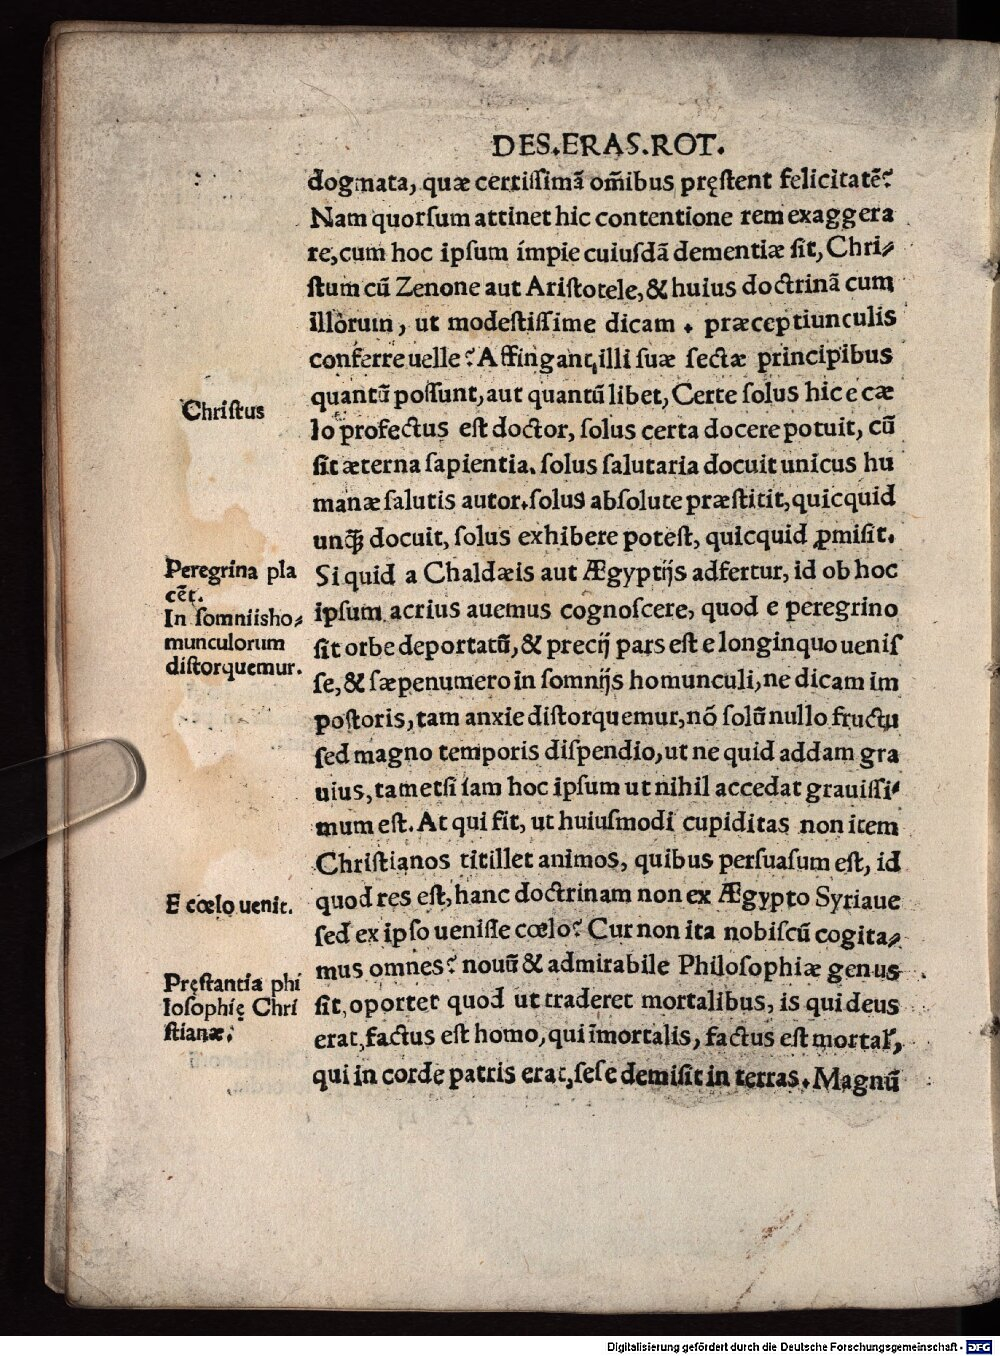 DES.ERAS.ROT.
dogmata, quæ certissimā om̃ibus pręstent felicitatē?
Nam quorsum attinet hic contentione rem exaggera
re, cum hoc ipsum impie cuiusdā dementiæ sit, Chri⸗
stum cū Zenone aut Aristotele, & huius doctrinā cum
illorum, ut modestissime dicam. præceptiunculis
conferre uelle? Affingant illi suæ sectæ principibus
quantū possunt, aut quantū libet, Certe solus hic e cæ
lo profectus est doctor, solus certa docere potuit, cū
sit æterna sapientia. solus salutaria docuit unicus hu
manæ salutis autor. solus absolute præstitit, quicquid
unꝗ̃ docuit, solus exhibere potest, quicquid ꝓmisit.
Si quid a Chaldæis aut Ægyptijs adfertur, id ob hoc
ipsum acrius auemus cognoscere, quod e peregrino
sit orbe deportatū, & precij pars est e longinquo uenis
se, & sæpenumero in somnijs homunculi, ne dicam im
postoris, tam anxie distorquemur, nō solū nullo fructu
sed magno temporis dispendio, ut ne quid addam gra
uius, tametsi iam hoc ipsum ut nihil accedat grauissi⸗
mum est. At qui fit, ut huiusmodi cupiditas non item
Christianos titillet animos, quibus persuasum est, id
quod res est, hanc doctrinam non ex Ægypto Syriaue
sed ex ipso uenisse cœlo? Cur non ita nobiscū cogita⸗
mus omnes? nouū & admirabile Philosophiæ genus
sit, oportet quod ut traderet mortalibus, is qui deus
erat, factus est homo, qui īmortalis, factus est mortał,
qui in corde patris erat, sese demisit in terras. Magnū
Christus
Peregrina pla
cēt.
In somniis ho⸗
munculorum
distorquemur.
E cœlo uenit.
Pręstantia phi
losophię Chri
stianæ.
Digitalisierung gefördert durch die Deutsche Forschungsgemeinschaft - DFG